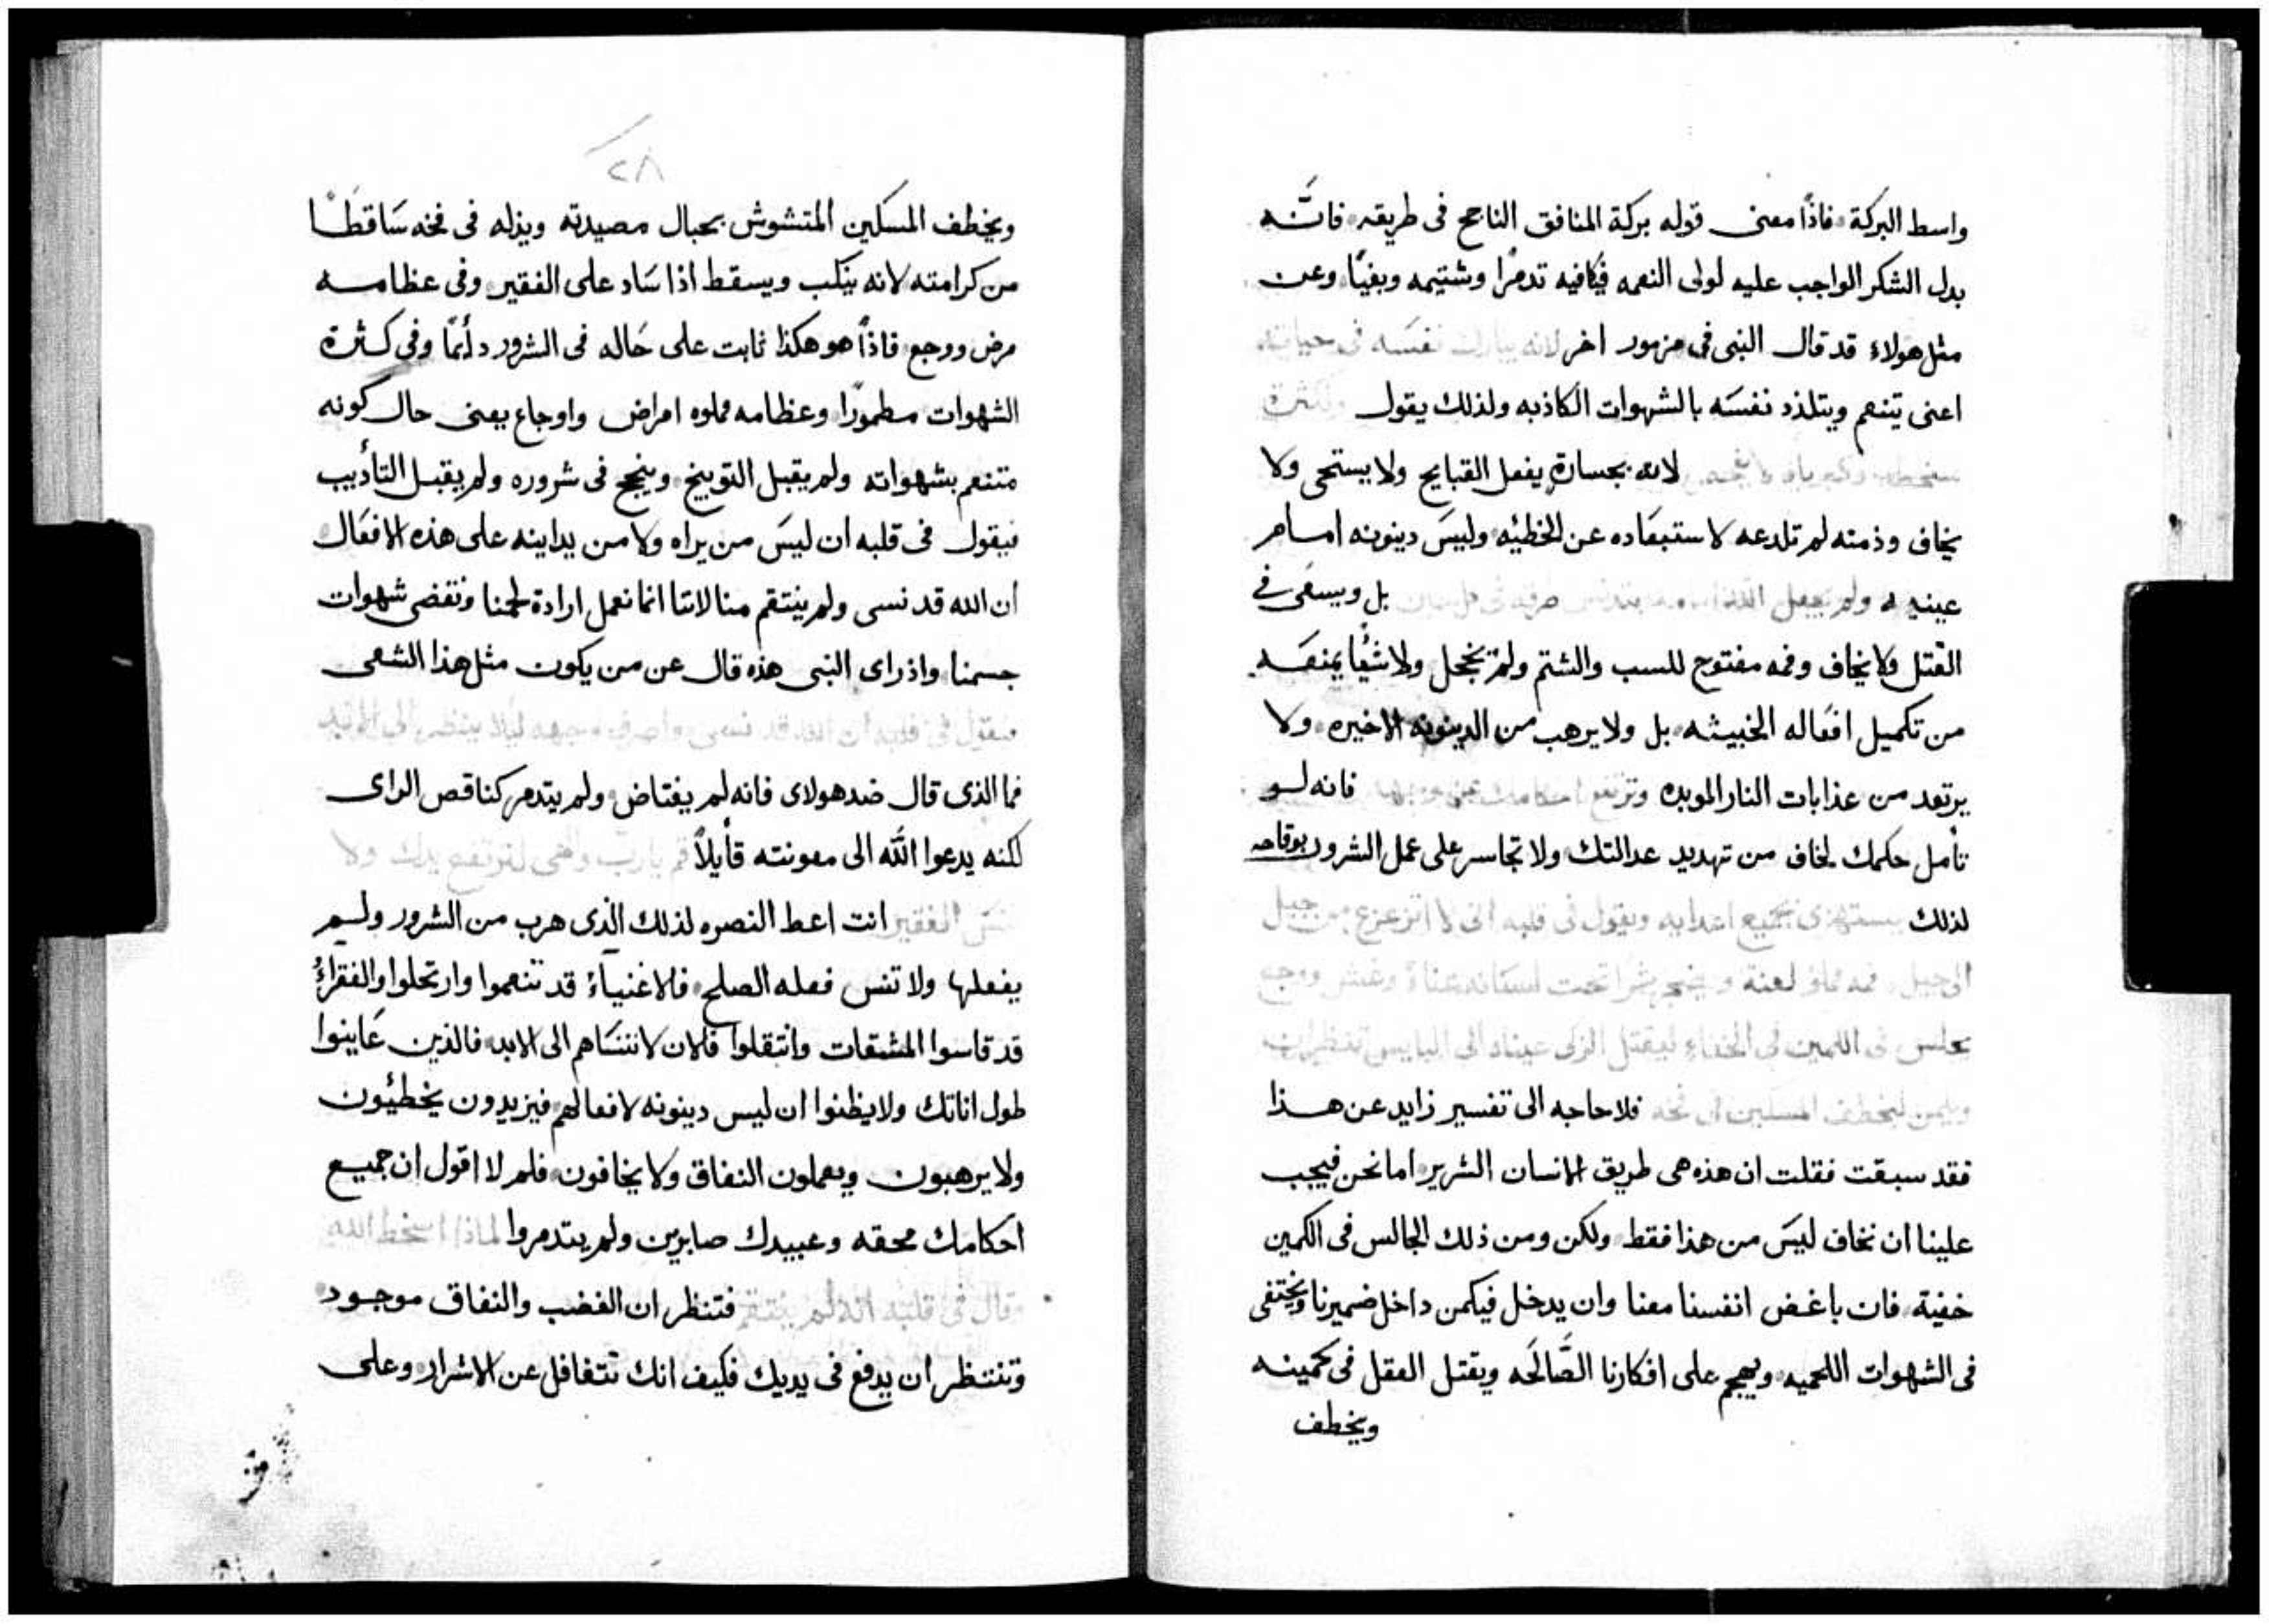 واسط البركة فاذًا معنى قوله بركة المنافق الناجح فى طريقه فانَّه
بدل الشكر الواجب عليه لولى النعمه فيكافيه تدمرًا وشتيمه وبغيًا وعن
مثل هولاء قد قال النبى فى مزمور اخر لانه يبارك نفسَه فى حياته
اعنى يتنعم ويتلذد نفسَه بالشهوات الكاذبه ولذلك يقول وبكثرة
لانه بجسارةٍ يفعل القبايح ولا يستحى ولا
يخاف وذمته لم تلدعه لاستبعَاده عن الخطيئه وليسَ دينونه امام
عينيه ولم يجعل الله امامه بتدنس طرقه فى كل حين بل ويسعَى فى
القتل ولا يخاف وفمه مفتوح للسب والشتم ولم يخجل ولا شيًا يمنعَه
من تكميل افعَاله الخبيثه بل ولا يرهب من الدينونه الاخيره ولا
يرتعد من عذابات النار الموبده وترتفع احكامك عن وجهه فانه لو
تأمل حكمك لخاف من تهديد عدالتك ولا تجاسر على عمل الشرور بوقاحه
لذلك يستهزى بجميع اعدايه ويقول فى قلبه انى لا اتزعزع من جيل
الى جيل فمه مملو لعنة وغش ووجع
يجلس فى الكمين فى الخفاء ليقتل الزكى عيناه الى البايس تنظران
ويكمن ليخطف المسكين فى فخه فلا حاجه الى تفسير زايد عن هذا
فقد سبقت فقلت ان هذه هى طريق الانسان الشرير اما نحن فيجب
علينا ان نخاف ليسَ من هذا فقط ولكن ومن ذلك الجالس فى الكمين
خفية فان باغض انفسنا معنا وان يدخل فيكمن داخل ضميرنا ويختفى
فى الشهوات اللحميه ويهجم على افكارنا الصَّالحَه ويقتل العقل فى كمينه
ويخطف
٢٨
ويخطف المسكين المتشوش بحبال مصيدته ويذله فى فخه سَاقطًا
من كرامته لانه ينكب ويسقط اذا سَاد على الفقير وفى عظامه
مرض ووجع فاذًا هو هكذا ثابت على حَاله فى الشرور دأيمًا وفى كثرة
الشهوات مطمورًا وعظامه مملوه امراض واوجاع بعنى حال كونه
متنعم بشهواته ولم يقبل التوبيخ وينجح فى شروره ولم يقبل التأديب
فيقول فى قلبه ان ليسَ من يراه ولا من يداينه على هذه الافعَال
ان الله قد نسى ولم ينتقم منا لاننا انما نعمل ارادة لحمنا ونقضى شهوات
جسمنا واذ راى النبى هذه قال عن من يكون مثل هذا الشقى
فيقول فى قلبه ان الله قد نسى واصرف وجهه ليلا ينظر الى الابد
فما الذى قال ضد هولاى فانه لم يغتاض ولم يتدمر كناقص الراى
لكنه يدعوا اللَّه الى معونته قأيلاً قم يا ربّ والهى لترتفع يدك ولا
تنسَ الفقير انت اعط النصره لذلك الذى هرب من الشرور ولم
يفعلها ولا تنس فعله الصلح فالاغنيآءُ قد تنعموا وارتحلوا والفقراءُ
قد قاسوا المشقات وانتقلوا فالان لا تنسَاهم الى الابد فالذين عَاينوا
طول اناتك ولا يظنوا ان ليس دينونه لافعالهم فيزيدون يخطئون
ولا يرهبون ويعملون النفاق ولا يخافون فلم لا اقول ان جميع
احكامك محقه وعبيدك صابرين ولم يتدمروا لماذا اسخط الله
وقال فى قلبه انه لم ينتقم فتنظر ان الغضب والنفاق موجود
وتنتظر ان يدفع فى يديك فكيف انك تتغافل عن الاشرار وعلى